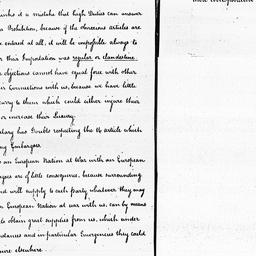 thinks it a mistake that high Duties can answer
a Prohibition, because if the obnoxious articles are
be entered at all, it will be impossible always to
r their Importation was regular or clandestine.
objections cannot have equal force with other
our Connections with us, because we have little
carry to them which could either injure their
or increase their Luxury.
has Doubts respecting the 16 article which
Embargoes
an European Nation at War with an European
are of little consequence, because surrounding
and will supply to each party whatever they may
an European Nation at war with us, can by means
obtain great supplies from us, which under
and in particular Emergencies they could
elsewhere